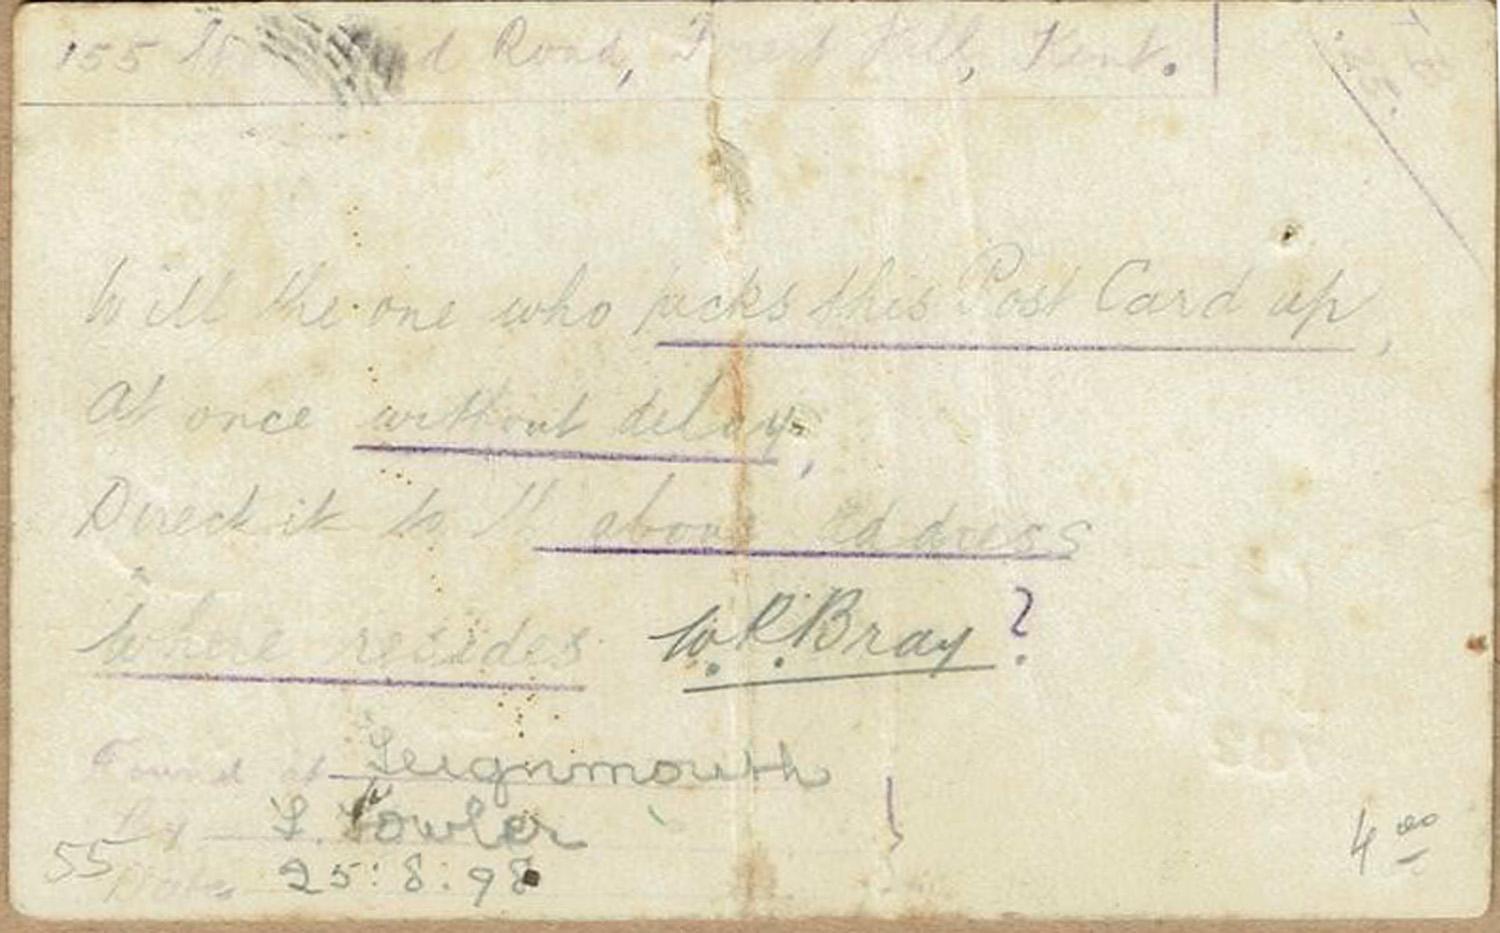 155 Road, Forest Hill, Kent.
Will the one who picks this Post Card up,
At once without delay,
Direct it to th' above address
Where resides W. R. Bray?
Found at Teignmouth
By Fowler
55
Date 25:8:98
4 00